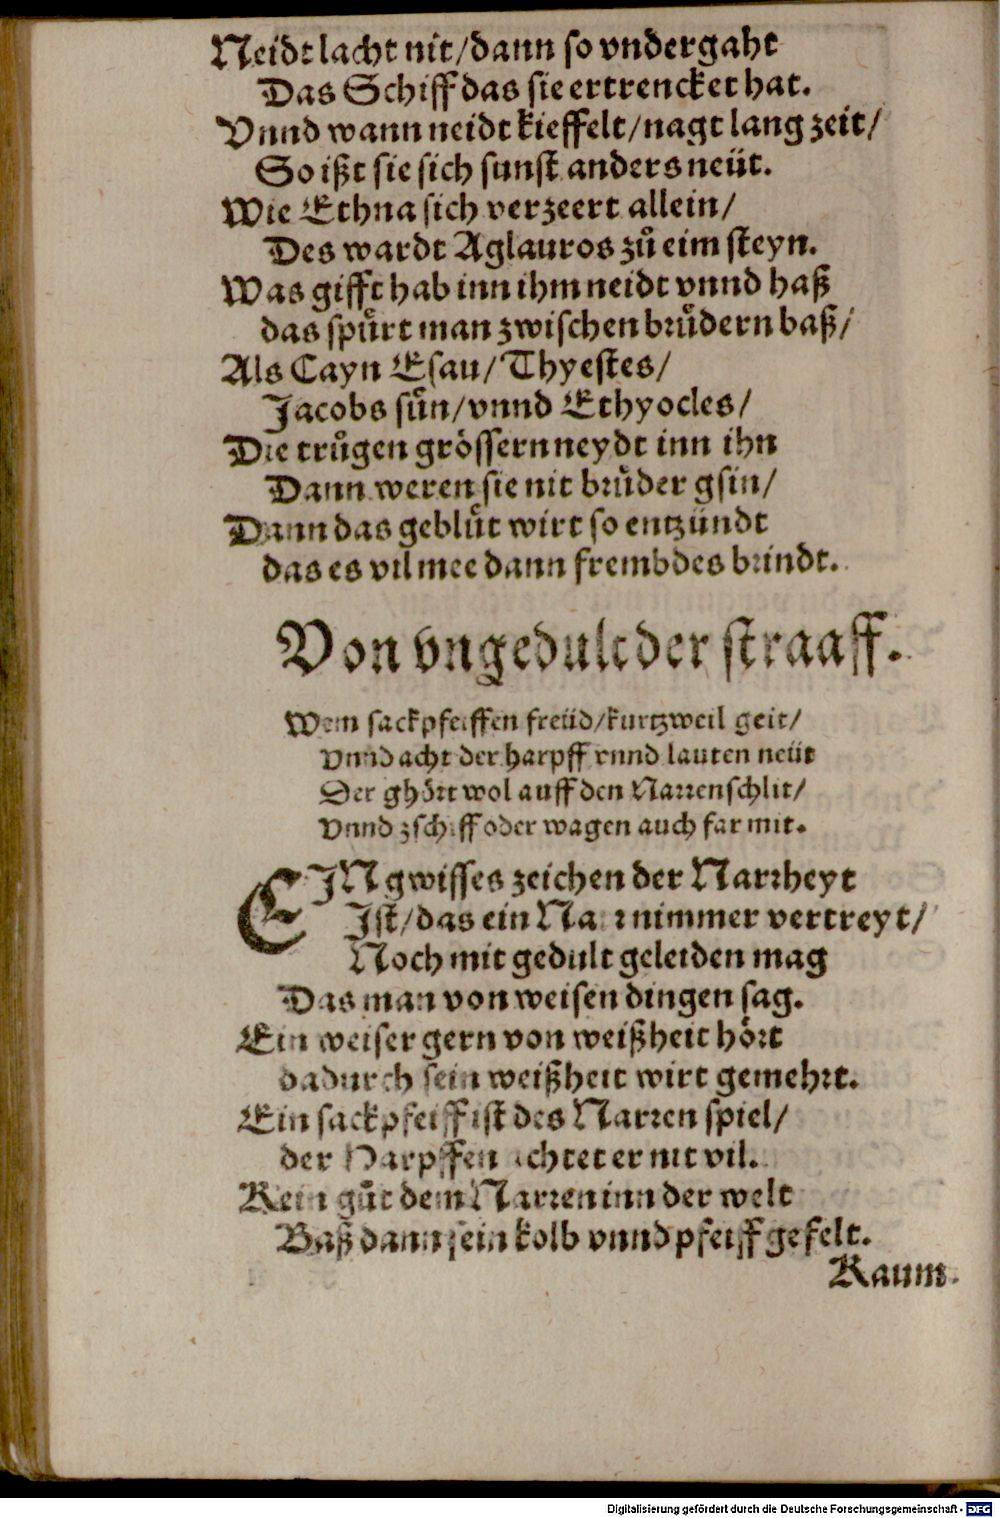 Neidt lacht nit/dann so vndergaht
Das Schiff das sie ertrencket hat.
Vnnd wann neidt kieffelt/nagt lang zeit/
So ißt sie sich sunst anders neüt.
Wie Ethna sich verzeert allein/
Des wardt Aglauros zů eim steyn.
Was gifft hab inn ihm neidt vnnd haß
das spůrt man zwischen brůdern baß/
Als Cayn Esau/Thyestes/
Jacobs sůn/vnnd Ethyocles/
Die trůgen grössern neydt inn ihn
Dann weren sie nit brůder gsin/
Dann das geblůt wirt so entzündt
das es vil mee dann frembdes brindt.
Von vngedult der straaff.
Wem sackpfeiffen freüd/kurtzweil geit/
vnnd acht der harpff vnnd lauten neüt
Der ghört wol auff den Narrenschlit/
Vnnd zschiff oder wagen auch far mit.
EIN gwisses zeichen der Narrheyt
Ist/das ein Narr nimmer vertreyt/
Noch mit gedult geleiden mag
Das man von weisen dingen sag.
Ein weiser gern von weißheit hört
dadurch sein weißheit wirt gemehrt.
Ein sackpfeiff ist des Narren spiel/
der Harpffen achtet er nit vil.
Kein gůt dem Narren inn der welt
Baß dann sein kolb vnnd pfeiff gefelt.
Kaum
Digitalisierung gefördert durch die Deutsche Forschungsgemeinschaft - DFG